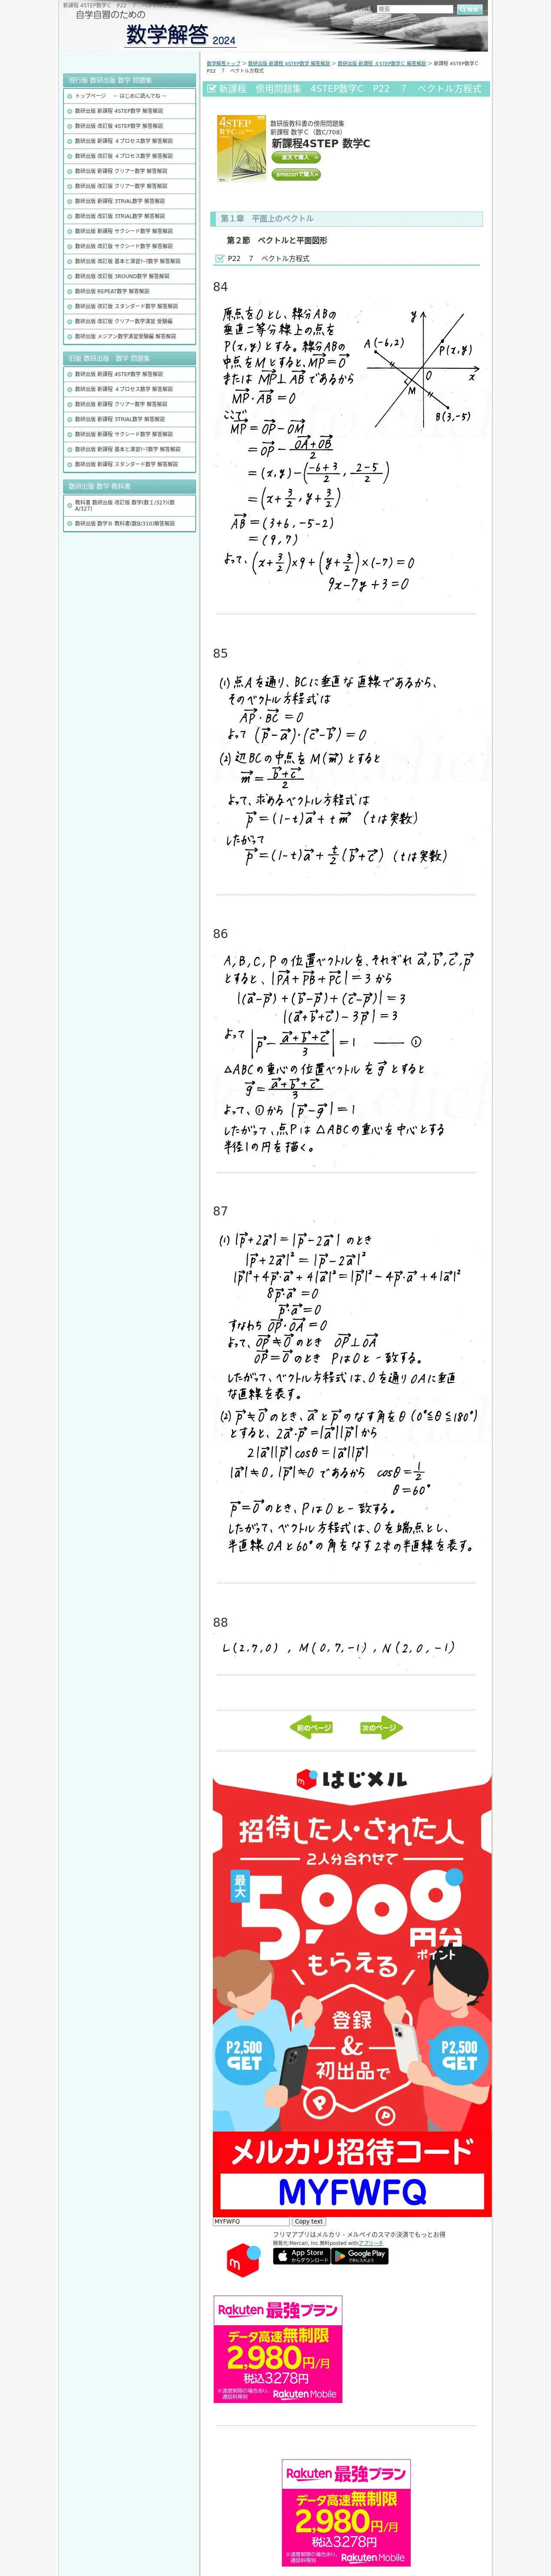 新課程 4STEP数学C　P22　７　ベクトル方程式
自学自習のための
数学解答 2024
検索
数学解答トップ ＞ 数研出版 新課程 4STEP数学 解答解説 ＞ 数研出版 新課程 4STEP数学C 解答解説 ＞ 新課程 4STEP数学C
P22　７　ベクトル方程式
新課程　傍用問題集　4STEP数学C　P22　７　ベクトル方程式
現行版 数研出版 数学 問題集
トップページ　－ はじめに読んでね －
数研出版 新課程 4STEP数学 解答解説
数研出版 改訂版 4STEP数学 解答解説
数研出版 新課程 ４プロセス数学 解答解説
数研出版 改訂版 ４プロセス数学 解答解説
数研出版 新課程 クリアー数学 解答解説
数研出版 改訂版 クリアー数学 解答解説
数研出版 新課程 3TRIAL数学 解答解説
数研出版 改訂版 3TRIAL数学 解答解説
数研出版 新課程 サクシード数学 解答解説
数研出版 改訂版 サクシード数学 解答解説
数研出版 改訂版 基本と演習ﾃｰﾏ数学 解答解説
数研出版 改訂版 3ROUND数学 解答解説
数研出版 REPEAT数学 解答解説
数研出版 改訂版 スタンダード数学 解答解説
数研出版 改訂版 クリアー数学演習 受験編
数研出版 メジアン数学演習受験編 解答解説
旧版 数研出版　数学 問題集
数研出版 新課程 4STEP数学 解答解説
数研出版 新課程 ４プロセス数学 解答解説
数研出版 新課程 クリアー数学 解答解説
数研出版 新課程 3TRIAL数学 解答解説
数研出版 新課程 サクシード数学 解答解説
数研出版 新課程 基本と演習ﾃｰﾏ数学 解答解説
数研出版 新課程 スタンダード数学 解答解説
数研出版 数学 教科書
教科書 数研出版 改訂版 数学(数Ⅰ/327)(数
A/327)
数研出版 数学Ｂ 教科書(数B/310)解答解説
4STEP
数学C
数研版教科書の傍用問題集
新課程 数学Ｃ（数C/708）
新課程4STEP 数学C
楽天で購入
amazonで購入
第１章　平面上のベクトル
第２節　ベクトルと平面図形
P22　７　ベクトル方程式
84
原点をOとし、線分ABの
垂直二等分線上の点を
P(x,y)とする。線分ABの
中点をMとすると、MP=0
または MP⊥AB であるから
MP・AB=0
ここで
MP=OP-OM
=OP-(OA+OB)/2
=(x,y)-((-6+3)/2, (2-5)/2)
=(x+3/2, y+3/2)
AB=(3+6,-5-2)
=(9,-7)
よって、(x+3/2)×9+(y+3/2)×(-7)=0
9x-7y+3=0
A(-6,2)
y
P(x,y)
O
x
M
B(3,-5)
85
(1) 点Aを通り、BCに垂直な直線であるから、
そのベクトル方程式は
AP・BC=0
よって (p-a)・(c-b)=0
(2) 辺BCの中点をM(m)とすると
m=(b+c)/2
よって、求めるベクトル方程式は
p=(1-t)a+tm （tは実数）
したがって
p=(1-t)a+t/2(b+c) （tは実数）
86
A,B,C,Pの位置ベクトルを、それぞれ a,b,c,p
とすると、|PA+PB+PC|=3から
|(a-p)+(b-p)+(c-p)|=3
|(a+b+c)-3p|=3
よって |p-(a+b+c)/3|=1 ――― ①
△ABCの重心の位置ベクトルをgとすると
g=(a+b+c)/3
よって、①から |p-g|=1
したがって、点Pは△ABCの重心を中心とする
半径1の円を描く。
87
(1) |p+2a|=|p-2a| のとき
|p+2a|²=|p-2a|²
|p|²+4p・a+4|a|²=|p|²-4p・a+4|a|²
8p・a=0
p・a=0
すなわち OP・OA=0
よって、OP≠0のとき OP⊥OA
OP=0のとき PはOと一致する。
したがって、ベクトル方程式は、Oを通りOAに垂直
な直線を表す。
(2) p≠0のとき、aとpのなす角をθ (0°≦θ≦180°)
とすると、2a・p=|a||p|から
2|a||p|cosθ=|a||p|
|a|≠0,|p|≠0であるから cosθ=1/2
θ=60°
p=0のとき、PはOと一致する。
したがって、ベクトル方程式は、Oを端点とし、
半直線OAと60°の角をなす2本の半直線を表す。
88
L(2,7,0) , M(0,7,-1) , N(2,0,-1)
前のページ
次のページ
はじメル
招待した人・された人
2人分合わせて
最大
5,000円分
ポイント
もらえる
登録
&
初出品で
P2,500
GET
P2,500
GET
メルカリ招待コード
MYFWFQ
MYFWFQ
Copy text
フリマアプリはメルカリ - メルペイのスマホ決済でもっとお得
開発元:Mercari, Inc.無料posted withアプリーチ
App Store
からダウンロード
Google Play
で手に入れよう
Rakuten 最強プラン
データ高速無制限
2,980円/月
税込3,278円
※速度制限の場合あり。
通話料等別
Rakuten Mobile
Rakuten 最強プラン
データ高速無制限
2,980円/月
税込3,278円
※速度制限の場合あり。
通話料等別
Rakuten Mobile